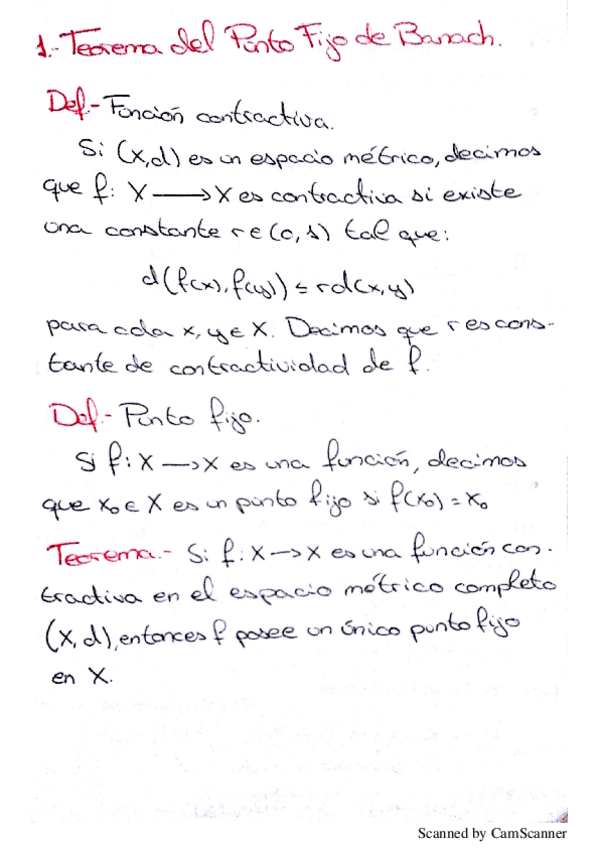 1.- Teorema del Punto Fijo de Banach.
Def.- Función contractiva.
Si (X,d) es un espacio métrico, decimos
que f: X → X es contractiva si existe
una constante r ∈ (0,1) tal que:
d(f(x), f(y)) ≤ rd(x,y)
para cada x, y ∈ X. Decimos que r es cons-
tante de contractividad de f.
Def.- Punto fijo.
Si f: X → X es una función, decimos
que x₀ ∈ X es un punto fijo si f(x₀) = x₀
Teorema.- Si f: X → X es una función con-
tractiva en el espacio métrico completo
(X,d), entonces f posee un único punto fijo
en X.
Scanned by CamScanner